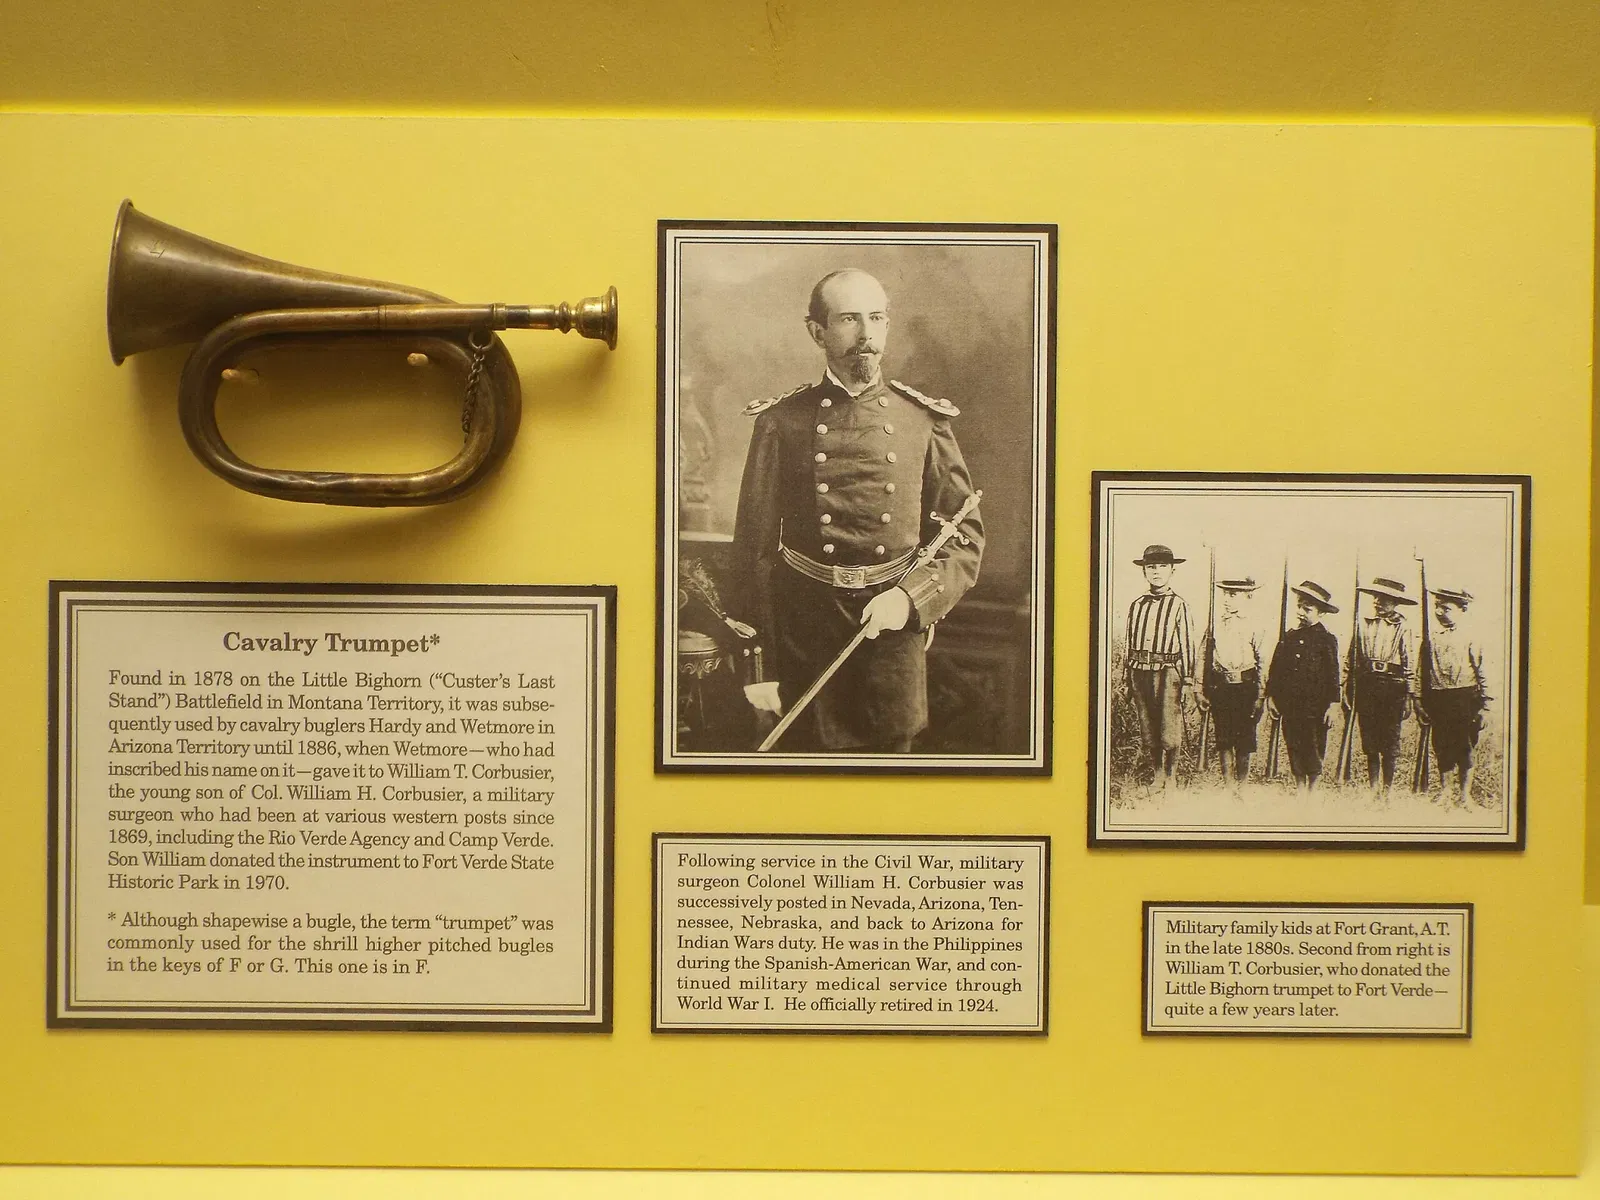 Cavalry Trumpet*
Found in 1878 on the Little Bighorn (“Custer’s Last
Stand”) Battlefield in Montana Territory, it was subse-
quently used by cavalry buglers Hardy and Wetmore in
Arizona Territory until 1886, when Wetmore—who had
inscribed his name on it—gave it to William T. Corbusier,
the young son of Col. William H. Corbusier, a military
surgeon who had been at various western posts since
1869, including the Rio Verde Agency and Camp Verde.
Son William donated the instrument to Fort Verde State
Historic Park in 1970.
* Although shapewise a bugle, the term “trumpet” was
commonly used for the shrill higher pitched bugles
in the keys of F or G. This one is in F.
Following service in the Civil War, military
surgeon Colonel William H. Corbusier was
successively posted in Nevada, Arizona, Ten-
nessee, Nebraska, and back to Arizona for
Indian Wars duty. He was in the Philippines
during the Spanish-American War, and con-
tinued military medical service through
World War I. He officially retired in 1924.
Military family kids at Fort Grant, A.T.
in the late 1880s. Second from right is
William T. Corbusier, who donated the
Little Bighorn trumpet to Fort Verde—
quite a few years later.